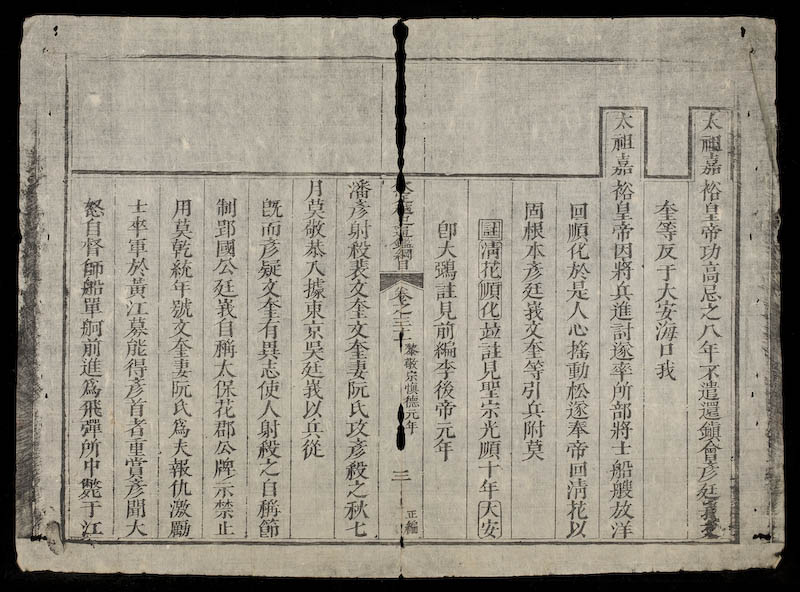 太祖嘉裕皇帝功高忌之八年不遣還鎮會彥廷峩文
奎等反于大安海口我
太祖嘉裕皇帝因將兵進討遂率所部將士船艘放洋
回順化於是人心搖動松遂奉帝回清花以
固根本彥廷峩文奎等引兵附莫
註清花順化並註見聖宗光順十年大安
卽大鴉註見前編李後帝元年
越史通鑑綱目 卷之三十 黎敬宗愼德元年 三 正編
潘彥射殺裴文奎文奎妻阮氏攻彥殺之秋七
月莫敬恭入據東京吳廷峩以兵從
旣而彥疑文奎有異志使人射殺之自稱節
制郢國公廷峩自稱太保花郡公牌示禁止
用莫乾統年號文奎妻阮氏爲夫報仇激勵
士卒軍於黃江募能得彥首者重賞彥聞大
怒自督師船單舸前進爲飛彈所中斃于江